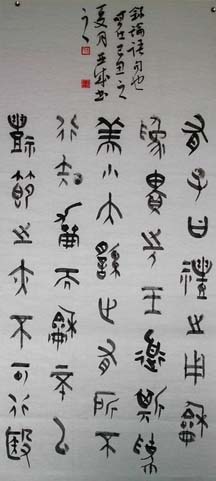 有子曰禮之用龢
為貴先王道斯為
美小大繇之有所不
行知龢而龢不以
禮節之亦不可行殹
錄論語句也
時在己丑之
夏月書